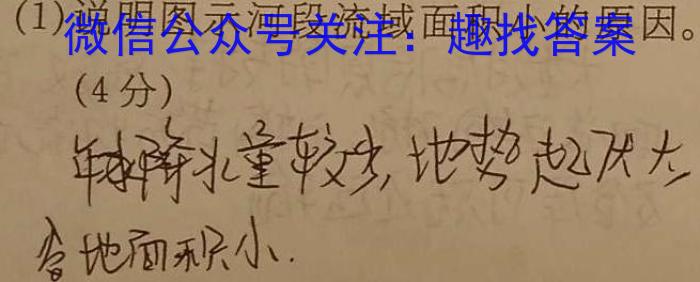 (1)说明图示河段流域面积小的原因。
微信公众号关注：趣找答案
(4分)
年降水量较少,地势起伏大,
谷地面积小.